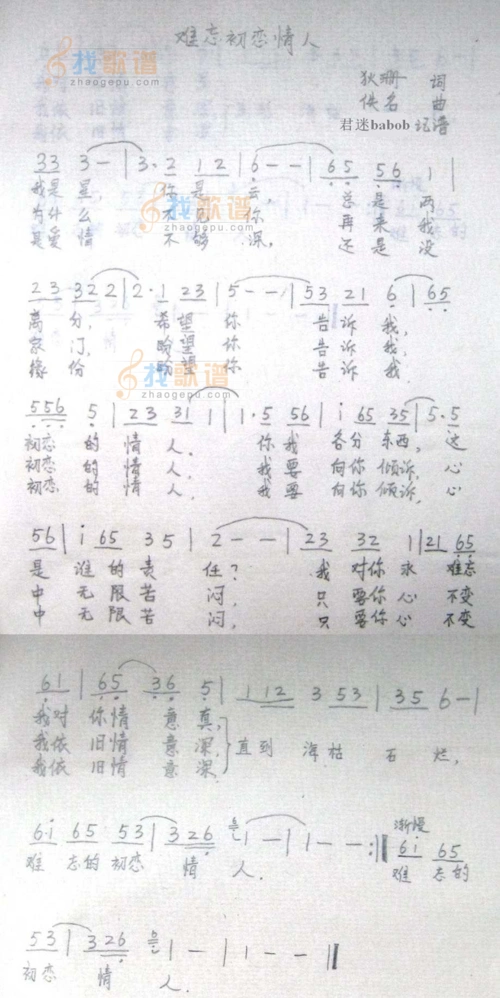 难忘初恋情人
找歌谱
zhaogepu.com
狄珊 词
佚名 曲
君迷babob 记谱
33 3 - | 3·2 12 | 6 - - | 65 56 1 |
我是星 你是云, 总是两
为什么 不见你 再来我
是爱情 不够深, 还是没
找歌谱
zhaogepu.com
23 322 | 2·1 23 | 5 - - | 53 21 6 | 65
离分, 希望 你 告诉 我,
家门, 盼望 你 告诉 我,
缘份 盼望 你 告诉 我.
找歌谱
zhaogepu.com
556 5 | 23 31 1 | 1·5 56 | i 65 35 | 5·5
初恋 的 情 人. 你我 各分 东西, 这
初恋 的 情 人, 我要 向你 倾诉, 心
初恋 的 情 人, 我要 向你 倾诉, 心
56 | i 65 35 | 2 - - | 23 32 1 | 21 65
是 谁 的 责 任? 我 对你 永 难忘
中 无 限 苦 闷, 只 要你 心 不变
中 无 限 苦 闷, 只 要你 心 不变
61 | 65 36 5 | 112 3 53 | 35 6 - |
我对 你情 意 真,
我依 旧情 意 深, 直到 海枯 石 烂,
我依 旧情 意 深
6i 65 53 | 326 1 - | 1 - - :|| 渐慢 6i 65
难 忘的 初恋 情 人. 难 忘的
53 | 326 1 - | 1 - - ||
初恋 情 人.